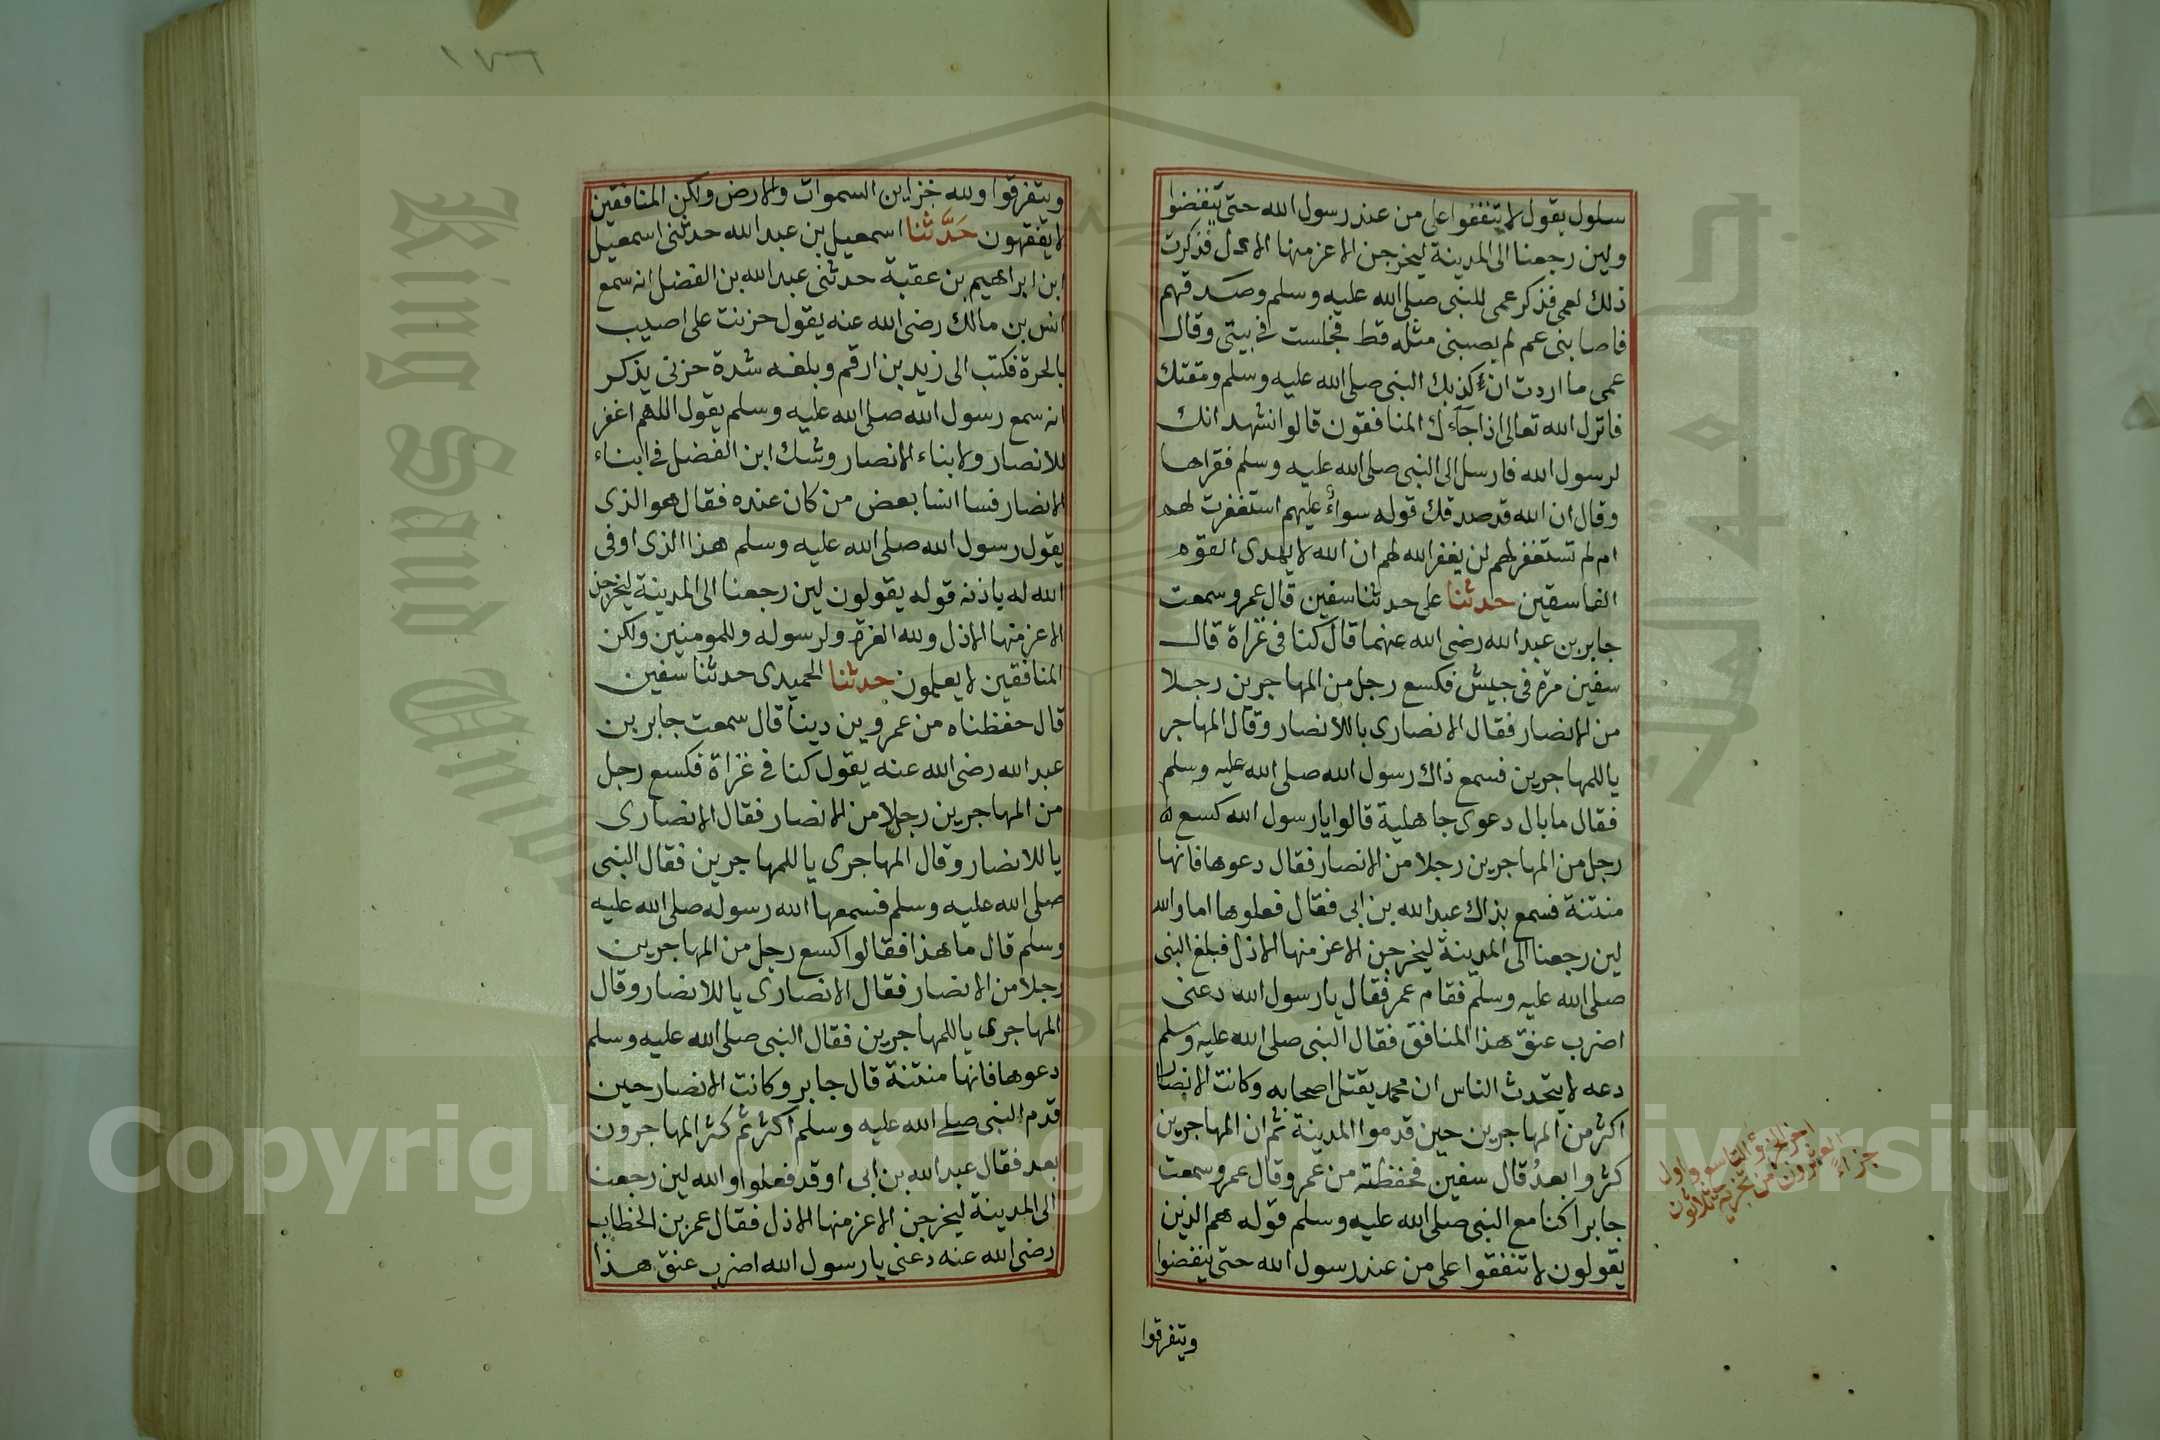 سلول يقول لا تنفقوا على من عند رسول الله حتى ينفضوا
ولين رجعنا الى المدينة ليخرجن الاعز منها الاذل فذكرت
ذلك لعمى فذكر عمى للنبى صلى الله عليه وسلم وصدقهم
فاصابنى غم لم يصبنى مثله قط فجلست فى بيتى وقال
عمى ما اردت ان كذبك النبى صلى الله عليه وسلم ومقتك
فانزل الله تعالى اذا جآءك المنافقون قالوا نشهد انك
لرسول الله فارسل الى النبى صلى الله عليه وسلم فقراها
وقال ان الله قد صدقك قوله سواء عليهم استغفرت لهم
ام لم تستغفر لهم لن يغفر الله لهم ان الله لا يهدى القوم
الفاسقين حدثنا على حدثنا سفين قال عمرو سمعت
جابر بن عبد الله رضى الله عنهما قال كنا فى غزاة قال
سفين مرة فى جيش فكسع رجل من المهاجرين رجلا
من الانصار فقال الانصارى ياللانصار وقال المهاجر
ياللمهاجرين فسمع ذاك رسول الله صلى الله عليه وسلم
فقال ما بال دعوى جاهلية قالوا يا رسول الله كسع
رجل من المهاجرين رجلا من الانصار فقال دعوها فانها
منتنة فسمع بذاك عبد الله بن ابى فقال فعلوها اما والله
لين رجعنا الى المدينة ليخرجن الاعز منها الاذل فبلغ النبى
صلى الله عليه وسلم فقام عمر فقال يا رسول الله دعنى
اضرب عنق هذا المنافق فقال النبى صلى الله عليه وسلم
دعه لا يتحدث الناس ان محمد يقتل اصحابه وكانت الانصار
اكثر من المهاجرين حين قدموا المدينة ثم ان المهاجرين
كثروا بعد قال سفين فحفظته من عمرو قال عمرو سمعت
جابرا كنا مع النبى صلى الله عليه وسلم قوله هم الذين
يقولون لا تنفقوا على من عند رسول الله حتى ينفضوا
ويتفرقوا
اخر الجزؤ التاسع واول
العشرون من تجزية ثلاثون
جزاءً
١٧٦
ويتفرقوا ولله خزاين السموات والارض ولكن المنافقين
لا يفقهون حَدَّثنا اسمعيل بن عبد الله حدثنى اسمعيل
ابن ابراهيم بن عقبة حدثنى عبد الله بن الفضل انه سمع
انس بن مالك رضى الله عنه يقول حزنت على اصيب
بالحرة فكتب الى زيد بن ارقم وبلغه شدة حزنى يذكر
انه سمع رسول الله صلى الله عليه وسلم يقول اللهم اغفر
للانصار ولابناء الانصار وشك ابن الفضل فى ابناء
الانصار فسا انسا بعض من كان عنده فقال هو الذى
يقول رسول الله صلى الله عليه وسلم هذا الذى اوفى
الله له باذنه قوله يقولون لين رجعنا الى المدينة ليخرجن
الاعز منها الاذل ولله العزة ولرسوله وللمومنين ولكن
المنافقين لا يعلمون حدثنا الحميدى حدثنا سفين
قال حفظناه من عمرو بن دينا قال سمعت جابر بن
عبد الله رضى الله عنه يقول كنا فى غزاة فكسع رجل
من المهاجرين رجلا من الانصار فقال الانصارى
ياللانصار وقال المهاجرى ياللمهاجرين فقال النبى
صلى الله عليه وسلم فسمعها الله رسوله صلى الله عليه
وسلم قال ما هذا فقالوا كسع رجل من المهاجرين
رجلا من الانصار فقال الانصارى ياللانصار وقال
المهاجرى ياللمهاجرين فقال النبى صلى الله عليه وسلم
دعوها فانها منتنة قال جابر وكانت الانصار حين
قدم النبى صلى الله عليه وسلم اكثر ثم كثر المهاجرون
بعد فقال عبد الله بن ابى اوقد فعلوا والله لين رجعنا
الى المدينة ليخرجن الاعز منها الاذل فقال عمر بن الخطاب
رضى الله عنه دعنى يا رسول الله اضرب عنق هذا
King Saud University
1957
Copyright © King Saud University